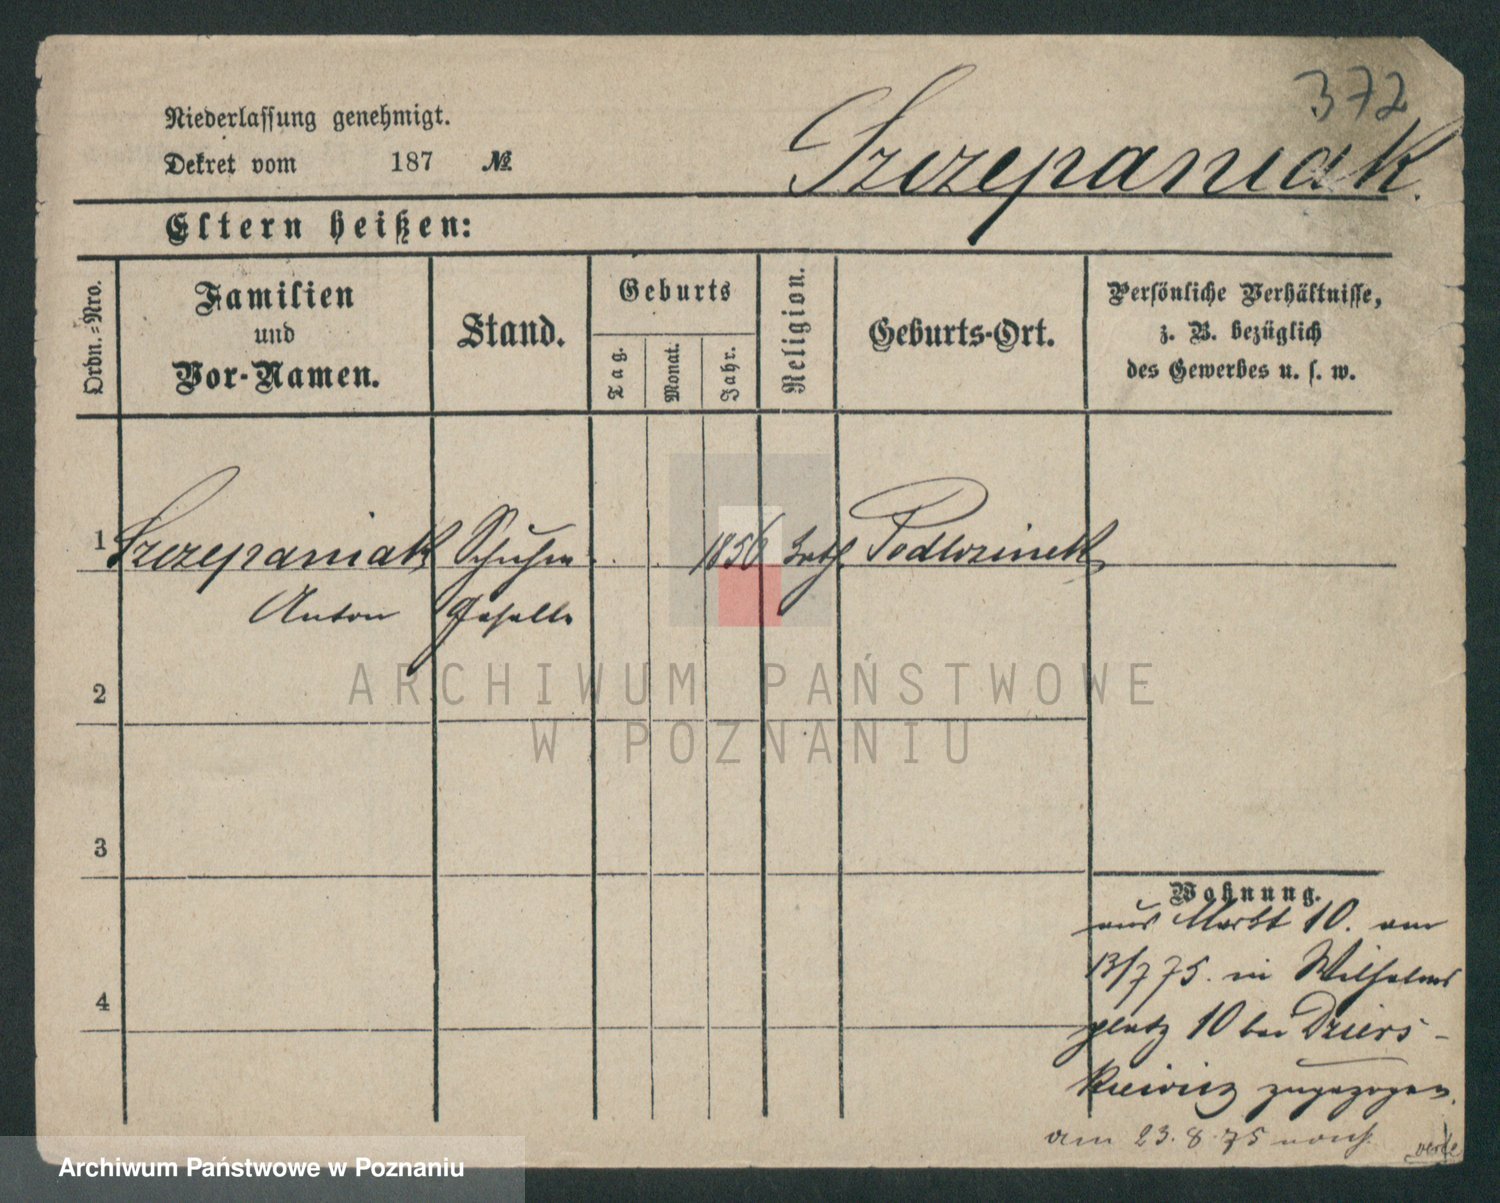 372
Niederlassung genehmigt.
Dekret vom 187 №
Szczepaniak.
Eltern heißen:
Ordn.=Nro.
Familien
und
Vor-Namen.
Stand.
Geburts
Tag.
Monat.
Jahr.
Religion.
Geburts-Ort.
Persönliche Verhältnisse,
z. B. bezüglich
des Gewerbes u. s. w.
1 Szczepaniak Schuhm 1856 kath.
Anton Geselle
2
3
4
Wohnung.
aus Markt 10. am
13/7 75. in Wilhelms
platz 10 bei Dziers-
kiewicz zugezogen.
am 23.8.75
ARCHIWUM PAŃSTWOWE
W POZNANIU
Archiwum Państwowe w Poznaniu